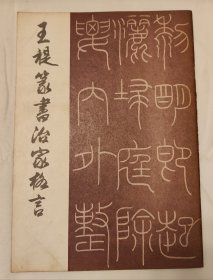 王禔篆書治家格言
黎明即起
灑埽庭除
要內外整